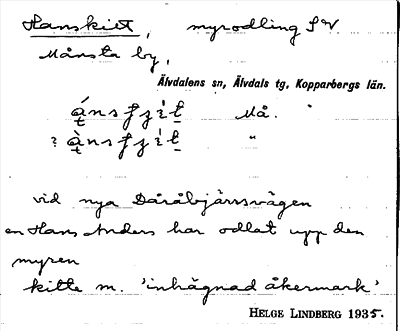 Hanskitt, myrodling SV
Månsta by,
Älvdalens sn, Älvdals tg, Kopparbergs län.
Må. "
? "
vid nya Dåråbjärsvägen
en Hans Anders har odlat upp den
myren
kitte m. 'inhägnad åkermark'
HELGE LINDBERG 1935.